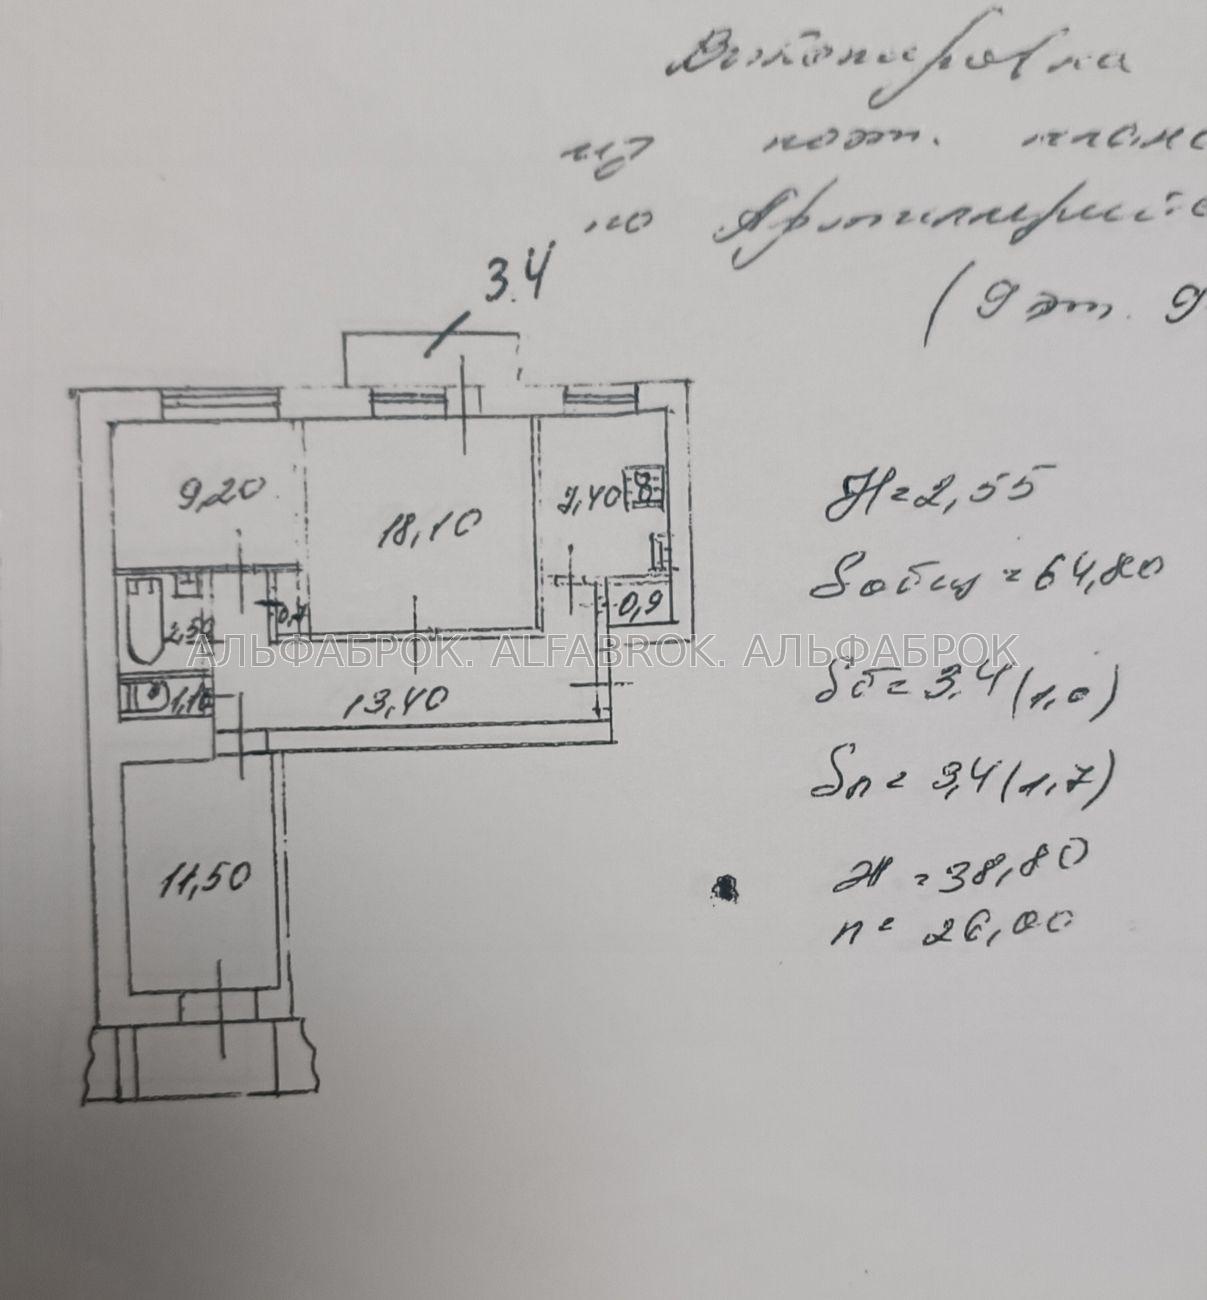 Выкопировка
из поэт. плана
по Артиллерийс
(9 эт. 9
3.4
9,20
18,10
7,40
0,9
0,7
2,50
АЛЬФАБРОК. ALFABROK. АЛЬФАБРОК
1,10
13,40
11,50
H=2,55
Sобщ=64,80
Sб=3.4(1,0)
Sл=3,4(1,7)
Ж=38,80
п=26,00